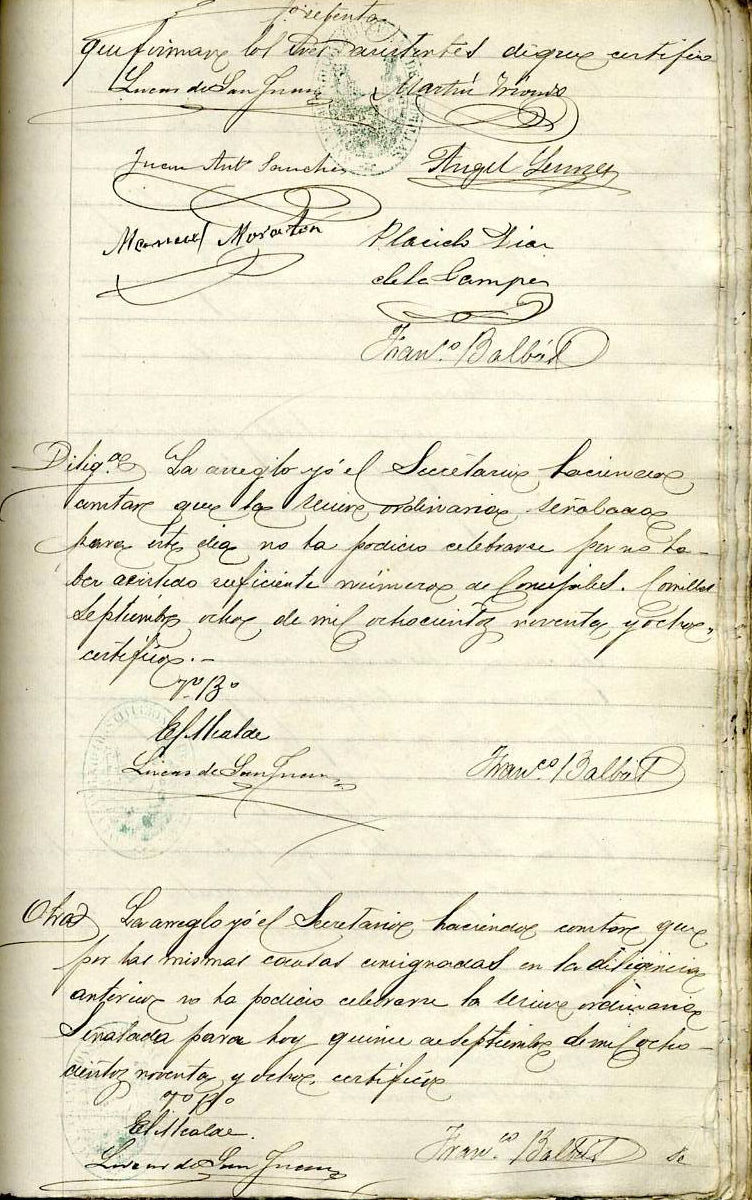 que firman los Sres asistentes de que certifico
Lucas de San Juan Martín
Juan Antº Sanchez Angel
Manuel Moratón Placido Diaz
de la Campa
Franco. Balbás
Diliga. La arreglo yó el Secretario haciendo
constar que la sesion ordinaria señalada
para este dia no ha podido celebrarse por no ha-
ber asistido suficiente número de Concejales. Comillas
Septiembre ocho de mil ochocientos noventa y ocho,
certifico.-
Vº Bº
El Alcalde
Lucas de San Juan Franco. Balbás
Otra La arreglo yó el Secretario haciendo constar que
por las mismas causas consignadas en la diligencia
anterior no ha podido celebrarse la sesion ordinaria
señalada para hoy quince de Septiembre de mil ocho-
cientos noventa y ocho, certifico
Vº Bº
El Alcalde.
Lucas de San Juan Franco. Balbás Se